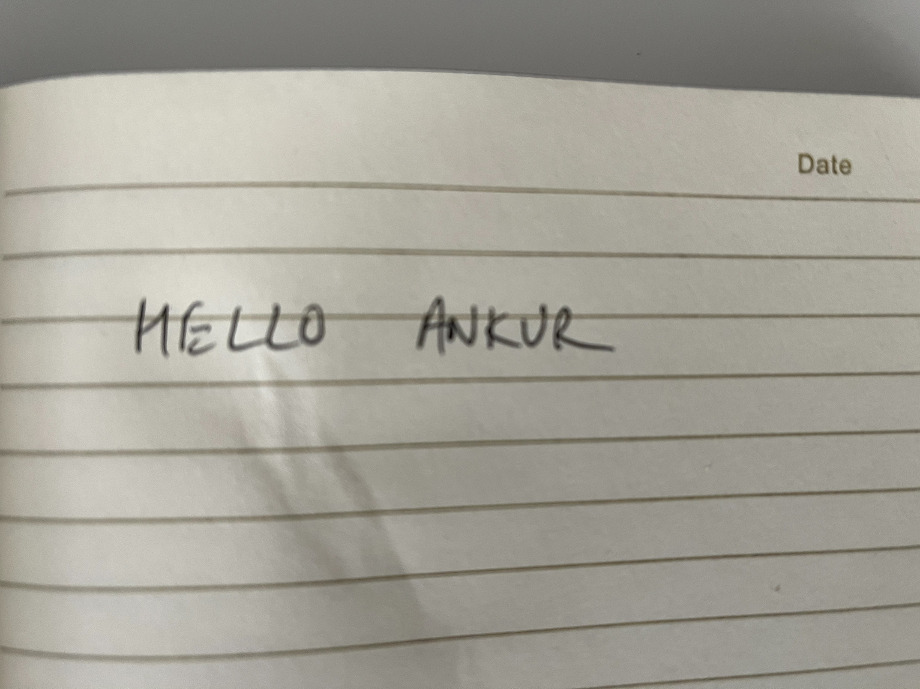 Date
HELLO ANKUR